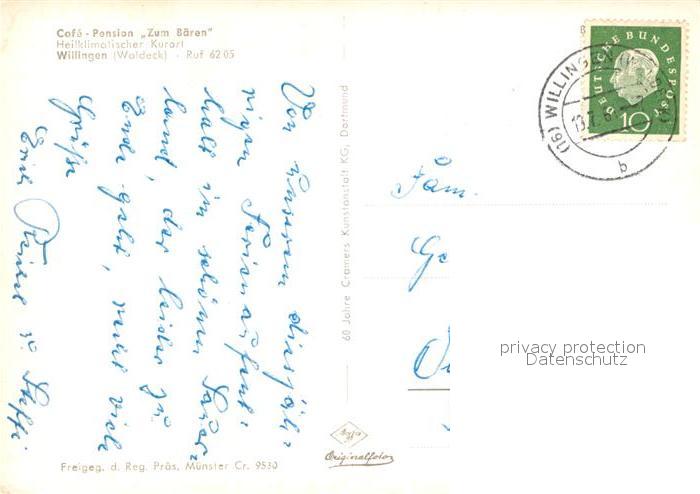 Café - Pension „Zum Bären"
Heilklimatischer Kurort
Willingen (Waldeck) - Ruf 6205
Von unserem diesjäh-
rigen Ferienaufent-
halt im schönen Sauer-
land, der leider zu
Ende geht, viele
Grüße
60 Jahre Cramers Kunstanstalt KG, Dortmund
Freigeg. d. Reg. Präs. Münster Cr. 9530
Agfa
Originalfoto
DEUTSCHE BUNDESPOST
10
(16) WILLINGEN
13.7.6
b
Fam.
privacy protection
Datenschutz